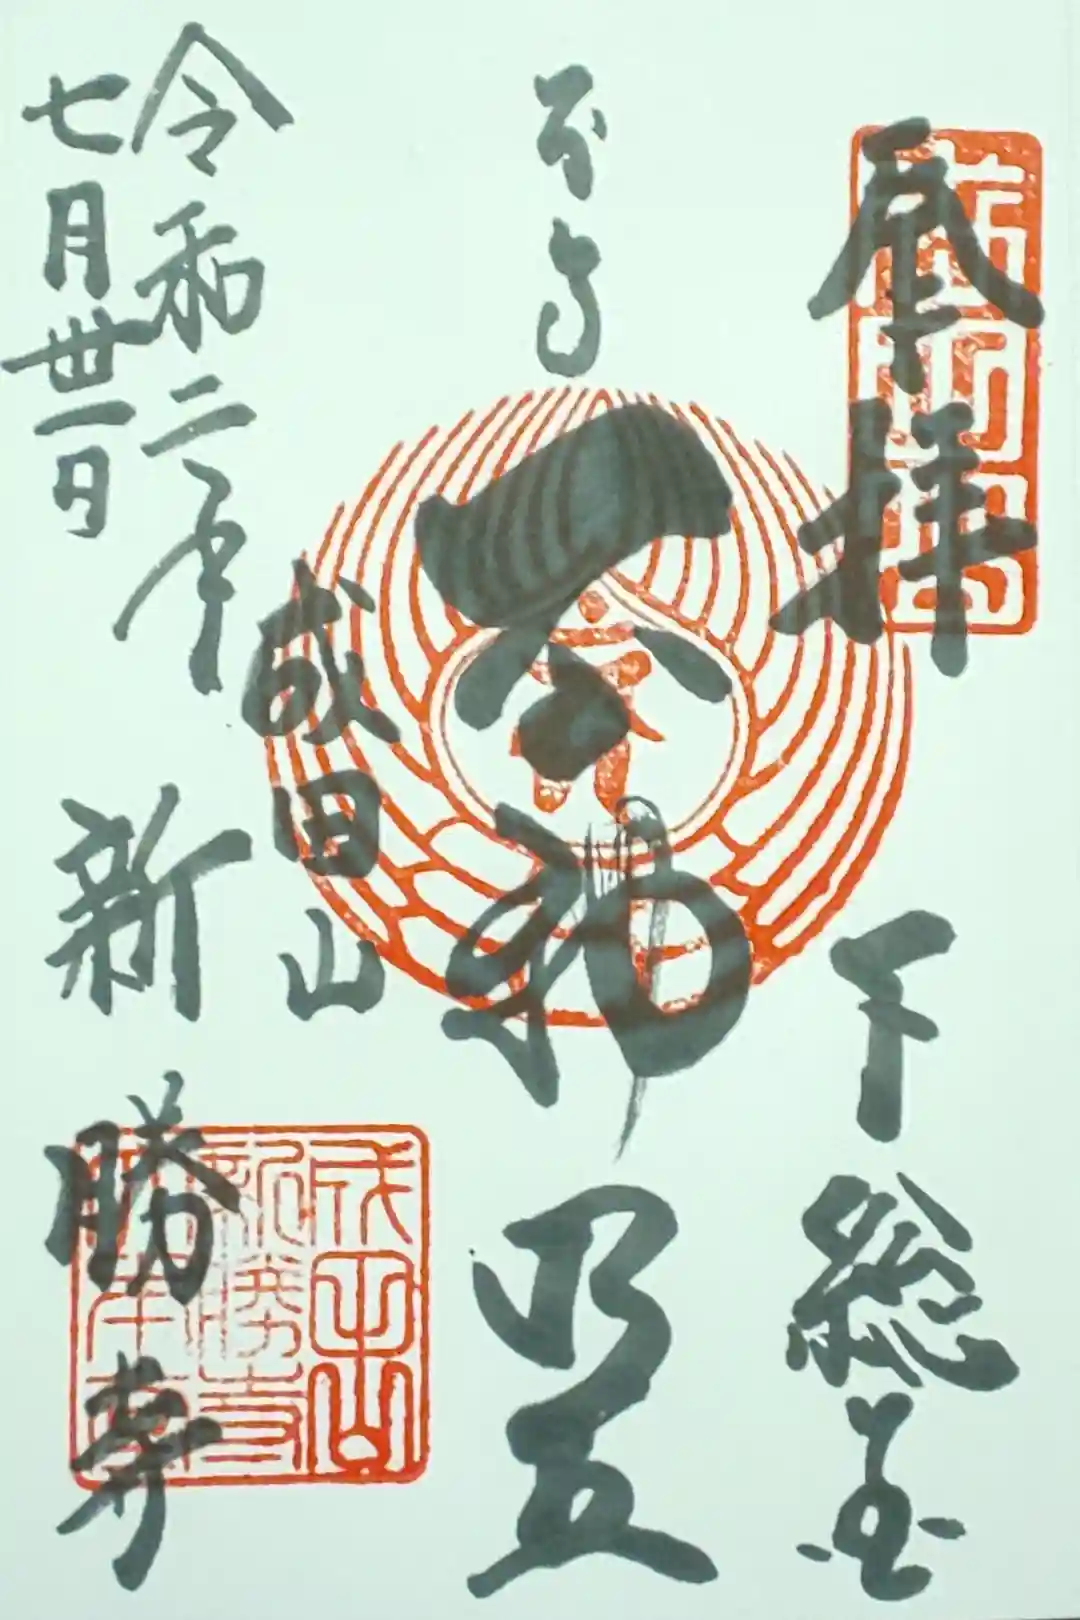 奉拝
下総国
本尊
不動明王
成田山
新勝寺
令和二年
七月卅一日
成田山
新勝寺